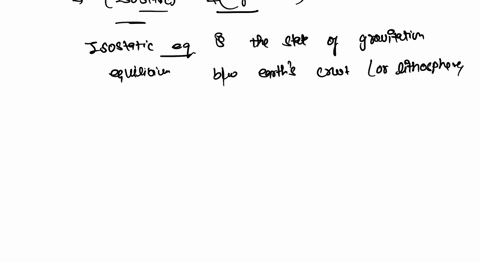 Isostatic eq is the state of gravitation
equilibium b/w earth's crust (or lithosphere,